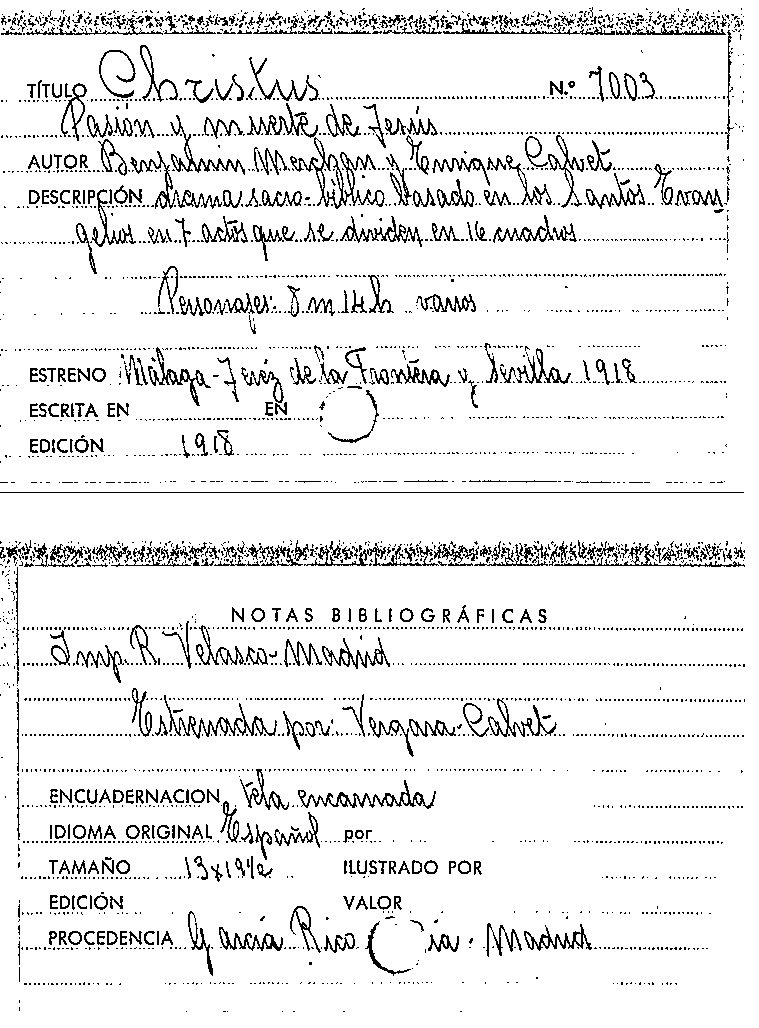 TÍTULO Christus N.º 7003
Pasión y muerte de Jesús
AUTOR Benjamin Merchan y Enrique Calvet
DESCRIPCIÓN drama sacro-bíblico basado en los Santos Evan
gelios en 7 actos que se dividen en 16 cuadros
Personajes: 8 m 14 h varios
ESTRENO Málaga-Jeréz de la Frontera y Sevilla 1918
ESCRITA EN EN
EDICIÓN 1918
NOTAS BIBLIOGRÁFICAS
Imp. R. Velasco-Madrid
Estrenada por: Vergara-Calvet
ENCUADERNACION tela encarnada
IDIOMA ORIGINAL Español por
TAMAÑO 13x19½ ILUSTRADO POR
EDICIÓN VALOR
PROCEDENCIA García Rico ia. Madrid